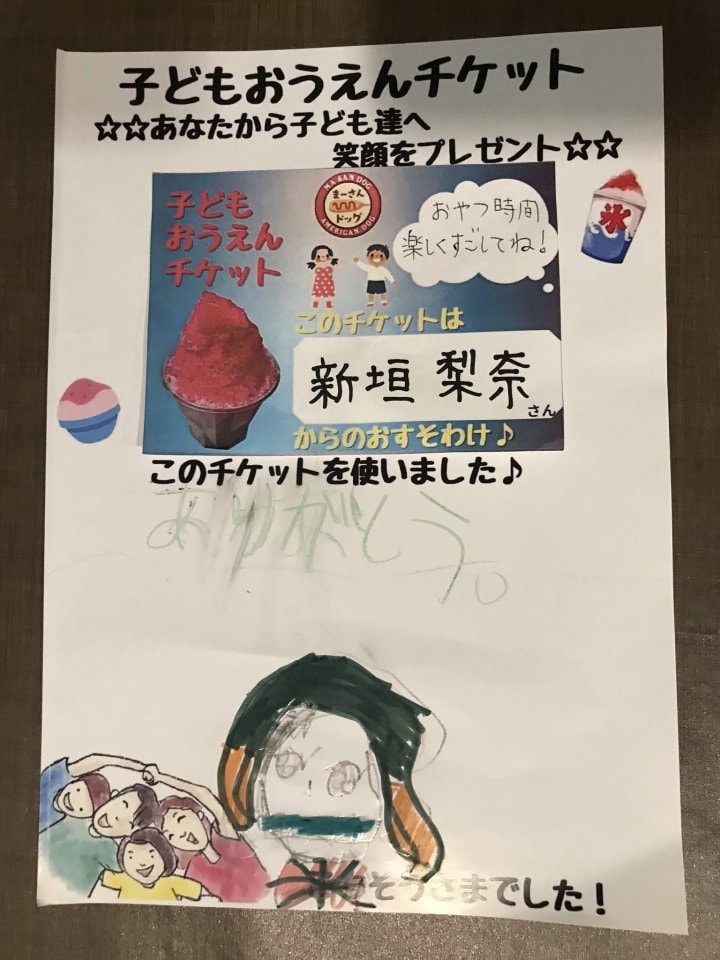 子どもおうえんチケット
☆☆あなたから子ども達へ
笑顔をプレゼント☆☆
子ども
おうえん
チケット
MA SAN DOG
まーさん
ドッグ
AMERICAN DOG
おやつ時間
楽しくすごしてね!
氷
このチケットは
新垣 梨奈
さん
からのおすそわけ♪
このチケットを使いました♪
ありがとう。
そうさまでした!